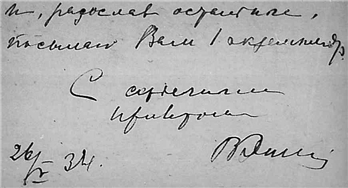 и, радослав остатние,
посылаю Вам 1 экземпляр.
С сердечным
приветом
26/V 34.